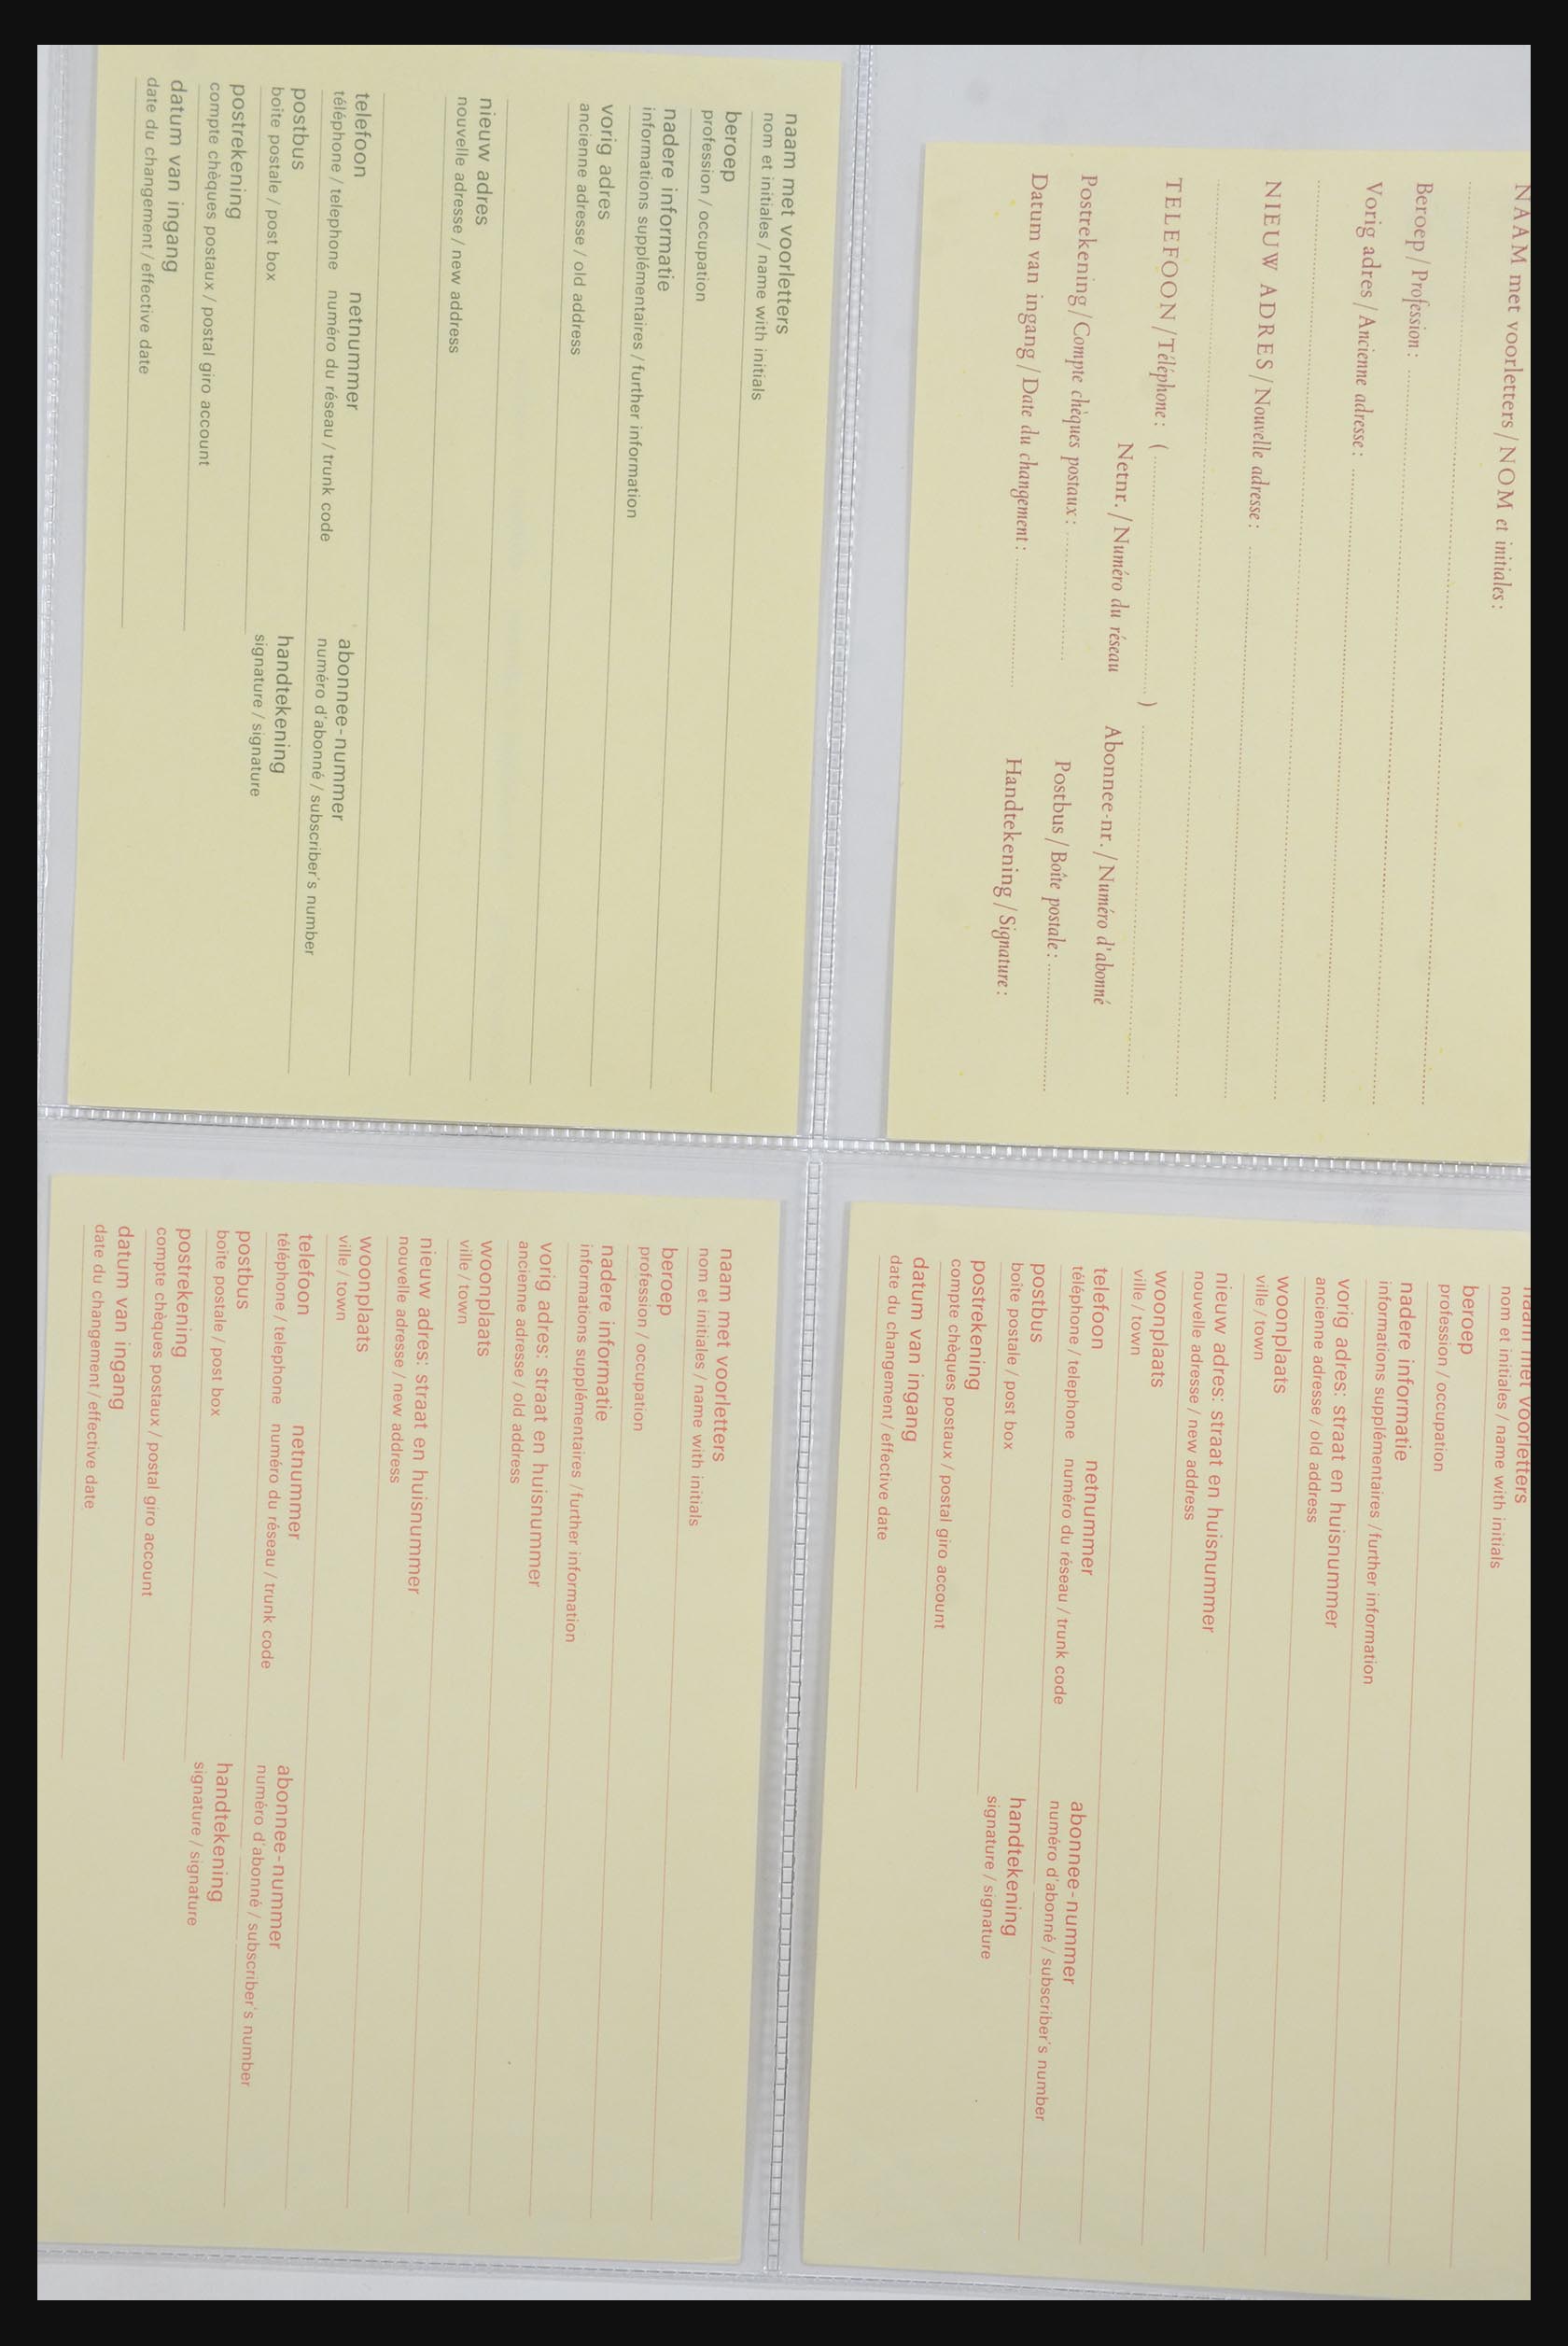 naam met voorletters
nom et initiales / name with initials
beroep
profession / occupation
nadere informatie
informations supplémentaires / further information
vorig adres
ancienne adresse / old address
nieuw adres
nouvelle adresse / new address
telefoon netnummer abonnee-nummer
téléphone / telephone numéro du réseau / trunk code numéro d'abonné / subscriber's number
postbus handtekening
boite postale / post box signature / signature
postrekening
compte chèques postaux / postal giro account
datum van ingang
date du changement / effective date
NAAM met voorletters / NOM et initiales :
Beroep / Profession :
Vorig adres / Ancienne adresse :
NIEUW ADRES / Nouvelle adresse :
TELEFOON / Téléphone : ( )
Netnr. / Numéro du réseau Abonnee-nr. / Numéro d'abonné
Postrekening / Compte chèques postaux : Postbus / Boîte postale :
Datum van ingang / Date du changement : Handtekening / Signature :
naam met voorletters
nom et initiales / name with initials
beroep
profession / occupation
nadere informatie
informations supplémentaires / further information
vorig adres: straat en huisnummer
ancienne adresse / old address
woonplaats
ville / town
nieuw adres: straat en huisnummer
nouvelle adresse / new address
woonplaats
ville / town
telefoon netnummer abonnee-nummer
téléphone / telephone numéro du réseau / trunk code numéro d'abonné / subscriber's number
postbus handtekening
boite postale / post box signature / signature
postrekening
compte chèques postaux / postal giro account
datum van ingang
date du changement / effective date
naam met voorletters
nom et initiales / name with initials
beroep
profession / occupation
nadere informatie
informations supplémentaires / further information
vorig adres: straat en huisnummer
ancienne adresse / old address
woonplaats
ville / town
nieuw adres: straat en huisnummer
nouvelle adresse / new address
woonplaats
ville / town
telefoon netnummer abonnee-nummer
téléphone / telephone numéro du réseau / trunk code numéro d'abonné / subscriber's number
postbus handtekening
boîte postale / post box signature / signature
postrekening
compte chèques postaux / postal giro account
datum van ingang
date du changement / effective date